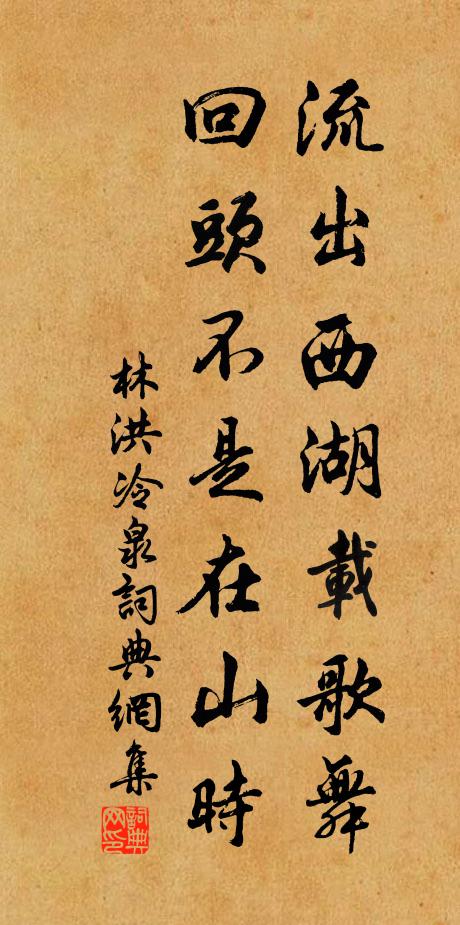 流出西湖載歌舞
回頭不是在山時
林洪冷泉詞典網集
詞典网印